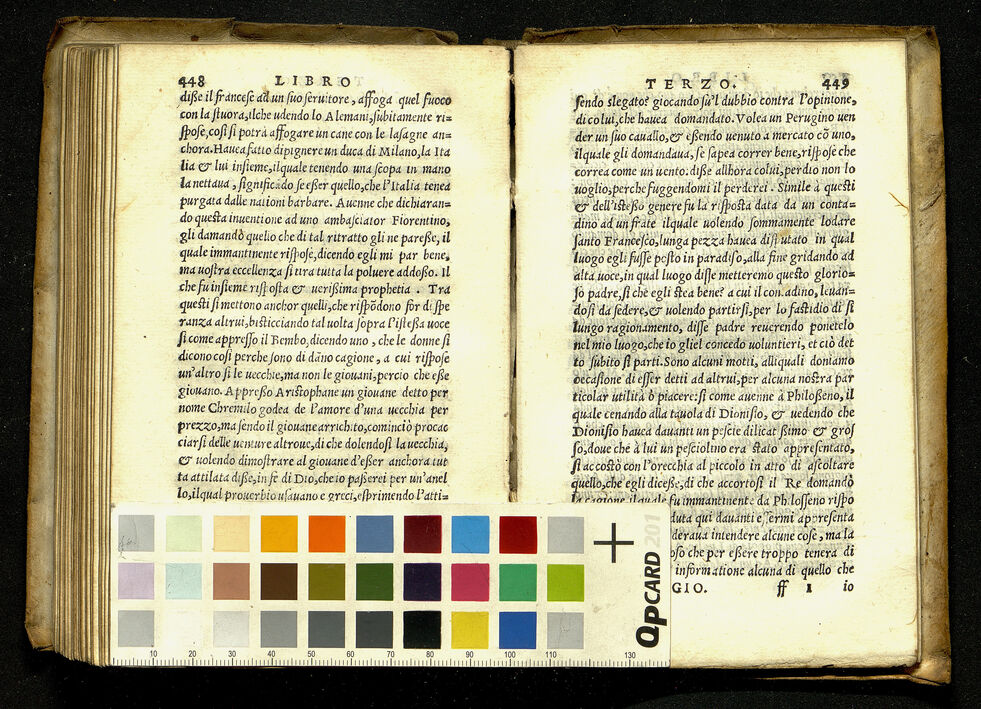 448 LIBRO
diße il francese ad un suo seruitore, affoga quel fuoco
con la stuora, ilche udendo lo Alemani, subitamente ri=
spose, così si potrà affogare un cane con le lasagne an=
chora. Hauea fatto dipignere un duca di Milano, la Ita
lia & lui insieme, ilquale tenendo una scopa in mano
la nettaua, significādo se eßer quello, che l'Italia tenea
purgata dalle nationi barbare. Auenne che dichiaran=
do questa inuentione ad uno ambasciator Fiorentino,
gli damandò quello che di tal ritratto gli ne pareße, il
quale immantinente rispose, dicendo egli mi par bene,
ma uostra eccellenza si tira tutta la poluere addoßo. Il
che fu insieme risposta & uerißima prophetia. Tra
questi si mettono anchor quelli, che rispōdono for di spe
ranza altrui, bisticciando tal uolta sopra l'isteßa uoce
si come appresso il Bembo, dicendo uno, che le donne si
dicono così perche sono di dāno cagione, a cui rispose
un'altro si le uecchie, ma non le giouani, percio che eße
giouano. Appreßo Aristophane un giouane detto per
nome Chremilo godea de l'amore d'una uecchia per
prezzo, ma sendo il giouane arrichito, cominciò procac
ciarsi delle uenture altroue, di che dolendosi la uecchia,
& uolendo dimostrare al giouane d'eßer anchora tut
ta attilata diße, in fe di Dio, che io paßerei per un'anel
lo, ilqual prouerbio usauano e greci, esprimendo l'atti=
TERZO. 449
sendo slegato? giocando sù'l dubbio contra l'opinione,
di colui, che hauea domandato. Volea un Perugino uen
der un suo cauallo, & eßendo uenuto a mercato cō uno,
ilquale gli domandaua, se sapea correr bene, rispose che
correa come un uento. diße allhora colui, perdio non lo
uoglio, perche fuggendomi il perderei. Simile à questi
& dell'isteßo genere fu la risposta data da un conta=
dino ad un frate ilquale uolendo sommamente lodare
santo Francesco, lunga pezza hauea disputato in qual
luogo egli fusse posto in paradiso, alla fine gridando ad
alta uoce, in qual luogo disse metteremo questo glorio=
so padre, si che egli stea bene? a cui il contadino, leuan=
dosi da sedere, & uolendo partirsi, per lo fastidio di sì
lungo ragionamento, disse padre reuerendo ponetelo
nel mio luogo, che io gliel concedo uoluntieri, et ciò det
to subito si partì. Sono alcuni motti, alliquali doniamo
occasione di esser detti ad altrui, per alcuna nostra par
ticolar utilità ò piacere: si come auenne à Philoßeno, il
quale cenando alla tauola di Dionisio, & uedendo che
Dionisio hauea dauanti un pescie dilicatißimo & gros
so, doue che à lui un pesciolino era stato appresentato,
si accostò con l'orecchia al piccolo in atto di ascoltare
quello, che egli diceße, di che accortosi il Re domandò
la cagione ilquale fu immantinente da Philosseno rispo
duta qui dauanti eßermi appresenta
deraua intendere alcune cose, ma la
oso che per eßere troppo tenera di
informatione alcuna di quello che
GIO. ff 1 io
QPCARD 201
10 20 30 40 50 60 70 80 90 100 110 130